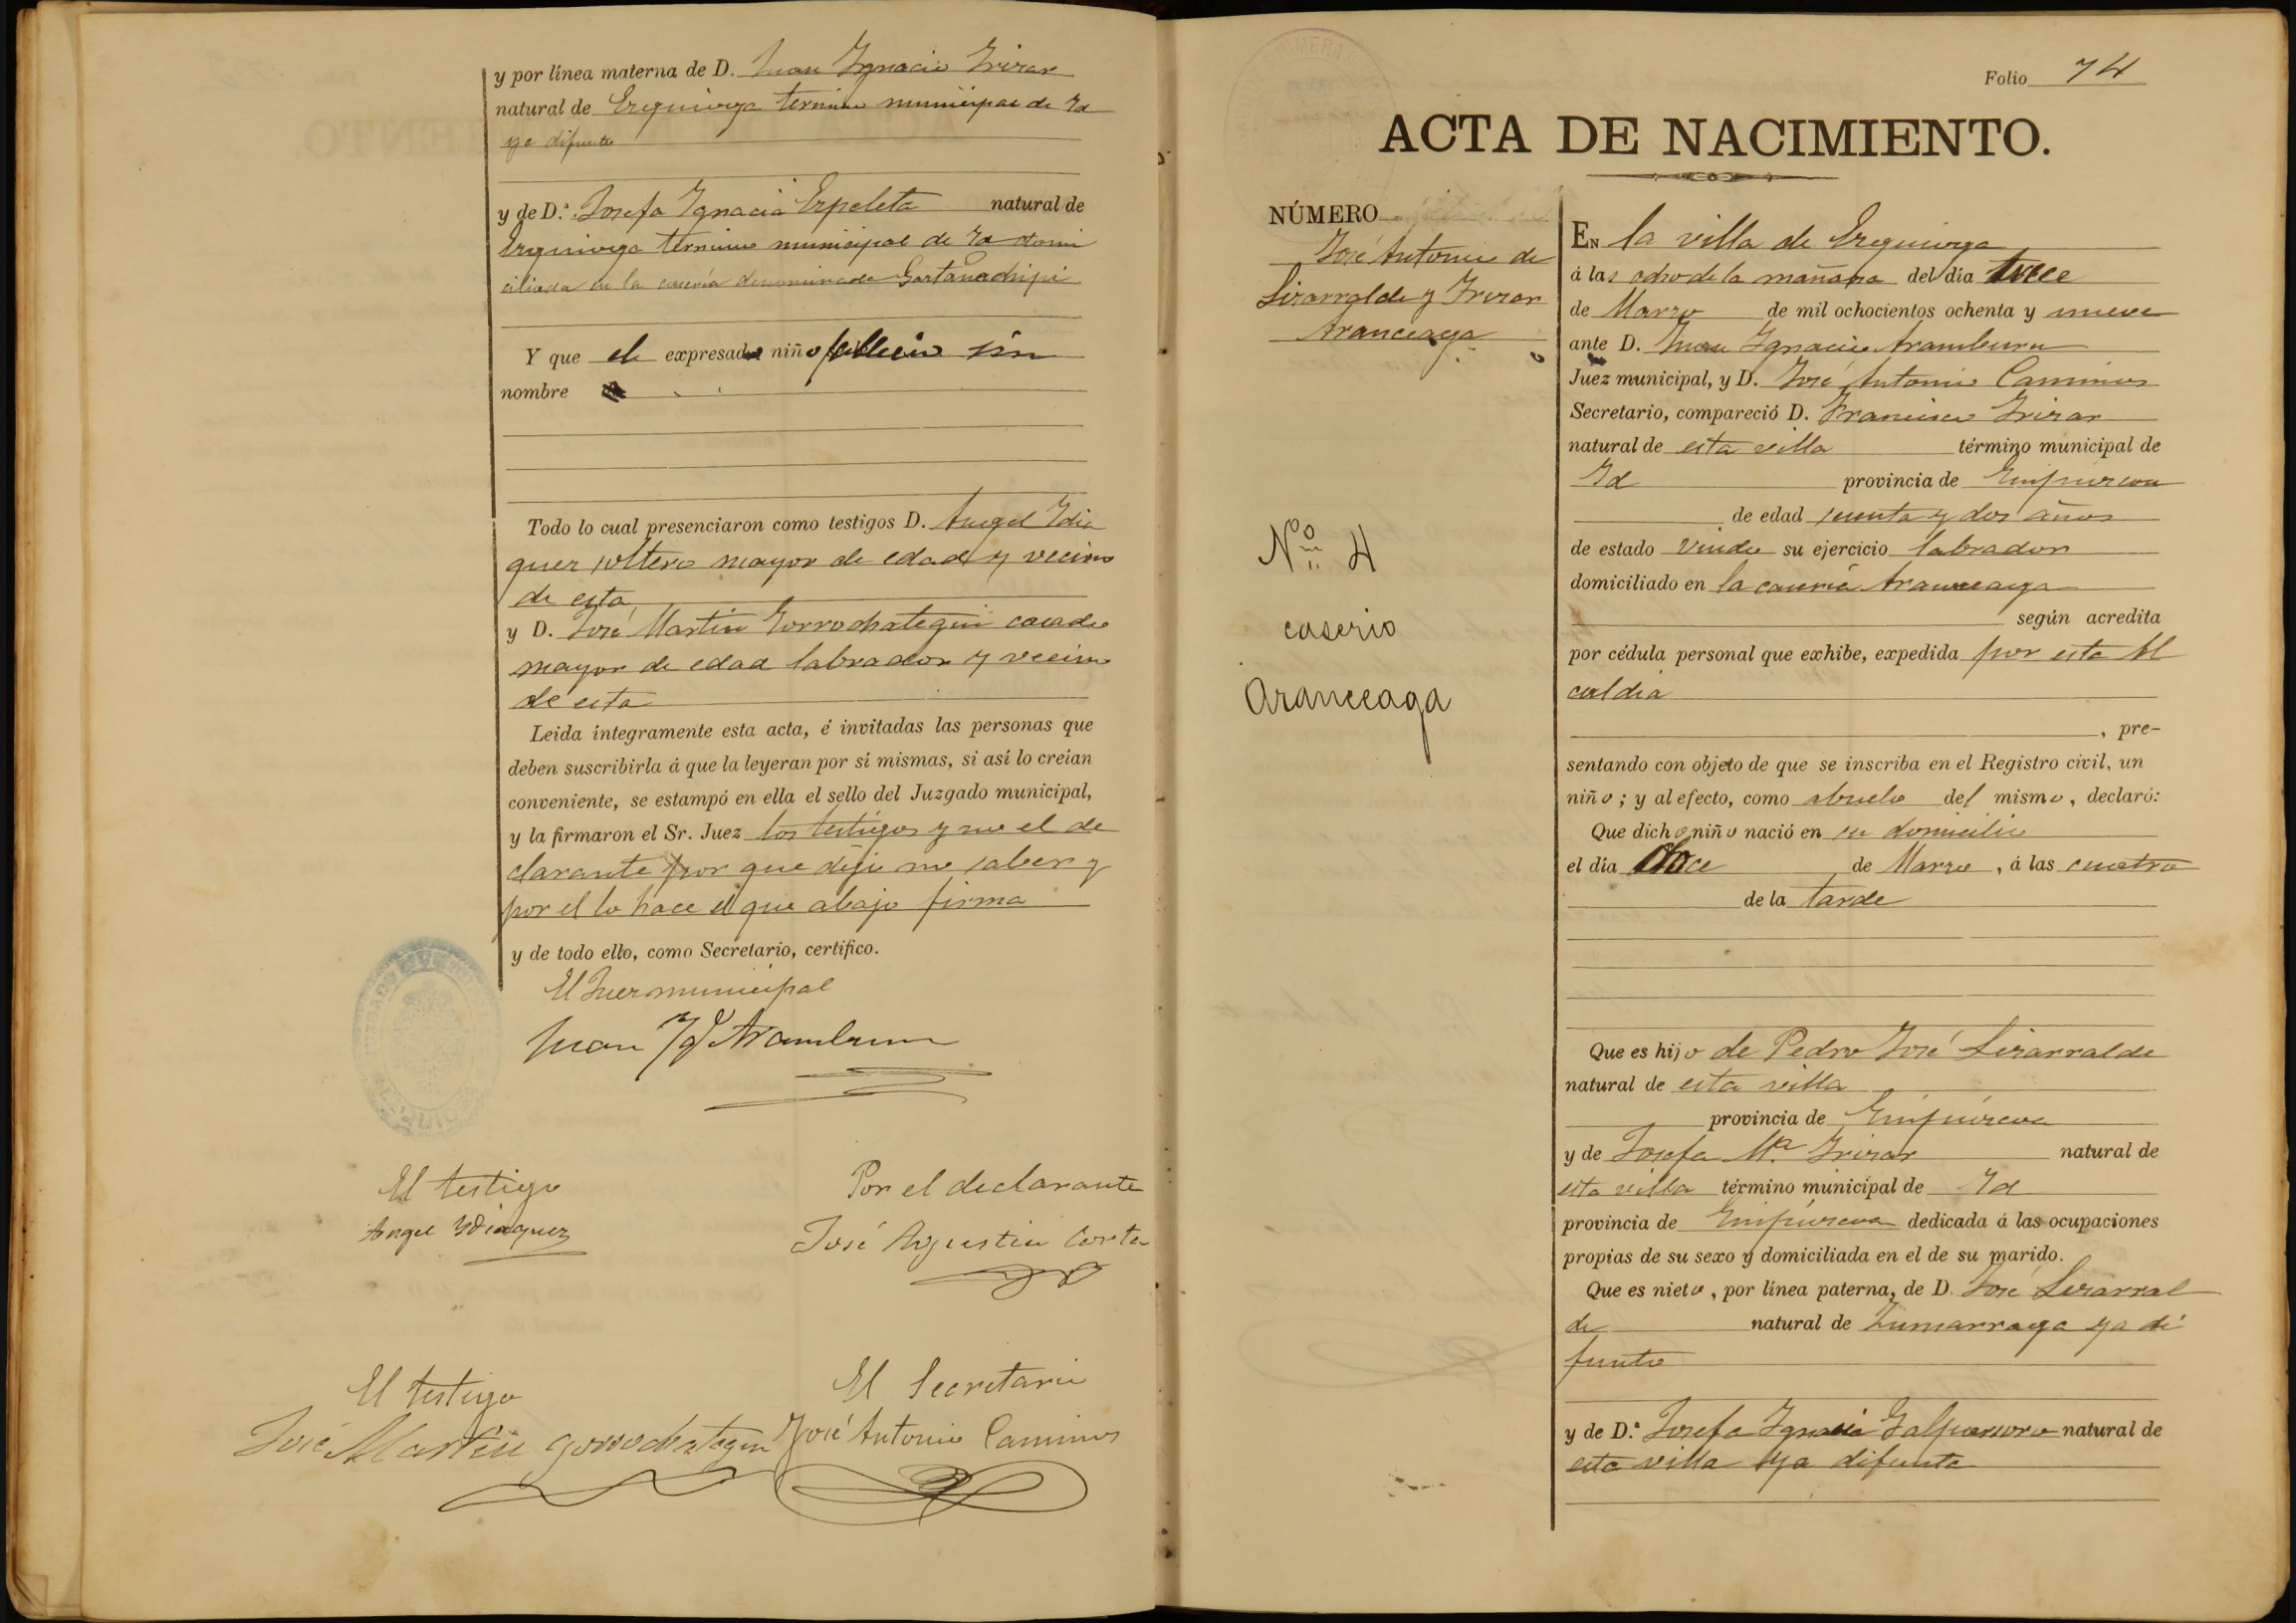 y por línea materna de D. Juan Ygnacio Yrizar
natural de Ezquioga termino municipal de Yd
ya difunto
y de D.ª Josefa Ygnacia Ezpeleta natural de
Ezquioga termino municipal de Yd domi
ciliada en la caseria denominada
Y que el expresado niño fallecio sin
nombre
Todo lo cual presenciaron como testigos D. Angel Ydia
quez soltero mayor de edad y vecino
de esta
y D. José Martin Gorrochategui casado
mayor de edad labrador y vecino
de esta
Leida íntegramente esta acta, é invitadas las personas que
deben suscribirla á que la leyeran por sí mismas, si así lo creían
conveniente, se estampó en ella el sello del Juzgado municipal,
y la firmaron el Sr. Juez los testigos y no el de
clarante por que dijo no saber y
por el lo hace el que abajo firma
y de todo ello, como Secretario, certifico.
El Juez municipal
Juan Ygº Aramburu
El testigo
Angel Ydiaquez
Por el declarante
José Agustin Corta
El testigo
José Martin Gorrochategui
El Secretario
José Antonio Caminos
Folio 74
ACTA DE NACIMIENTO.
NÚMERO
José Antonio de
Lizarralde y Yrizar
Aranceaga
Nº 4
caserio
Aranceaga
En la villa de Ezquioga
á las ocho de la mañana del día trece
de Marzo de mil ochocientos ochenta y nueve
ante D. Juan Ygnacio Aramburu
Juez municipal, y D. José Antonio Caminos
Secretario, compareció D. Francisco Yrizar
natural de esta villa término municipal de
Yd provincia de Guipúzcoa
de edad y dos años
de estado Viudo su ejercicio labrador
domiciliado en la caseria Aranceaga
según acredita
por cédula personal que exhibe, expedida por esta Al
caldia
, pre-
sentando con objeto de que se inscriba en el Registro civil, un
niño; y al efecto, como abuelo del mismo, declaró:
Que dicho niño nació en su domicilio
el día doce de Marzo, á las cuatro
de la tarde
Que es hijo de Pedro José Lizarralde
natural de esta villa
provincia de Guipúzcoa
y de Josefa Mª Yrizar natural de
esta villa término municipal de Yd
provincia de Guipúzcoa dedicada á las ocupaciones
propias de su sexo y domiciliada en el de su marido.
Que es nieto, por línea paterna, de D. José Lizarral
de natural de Zumarraga ya di
funto
y de D.ª Josefa Ygnacia Galparsoro natural de
esta villa ya difunta